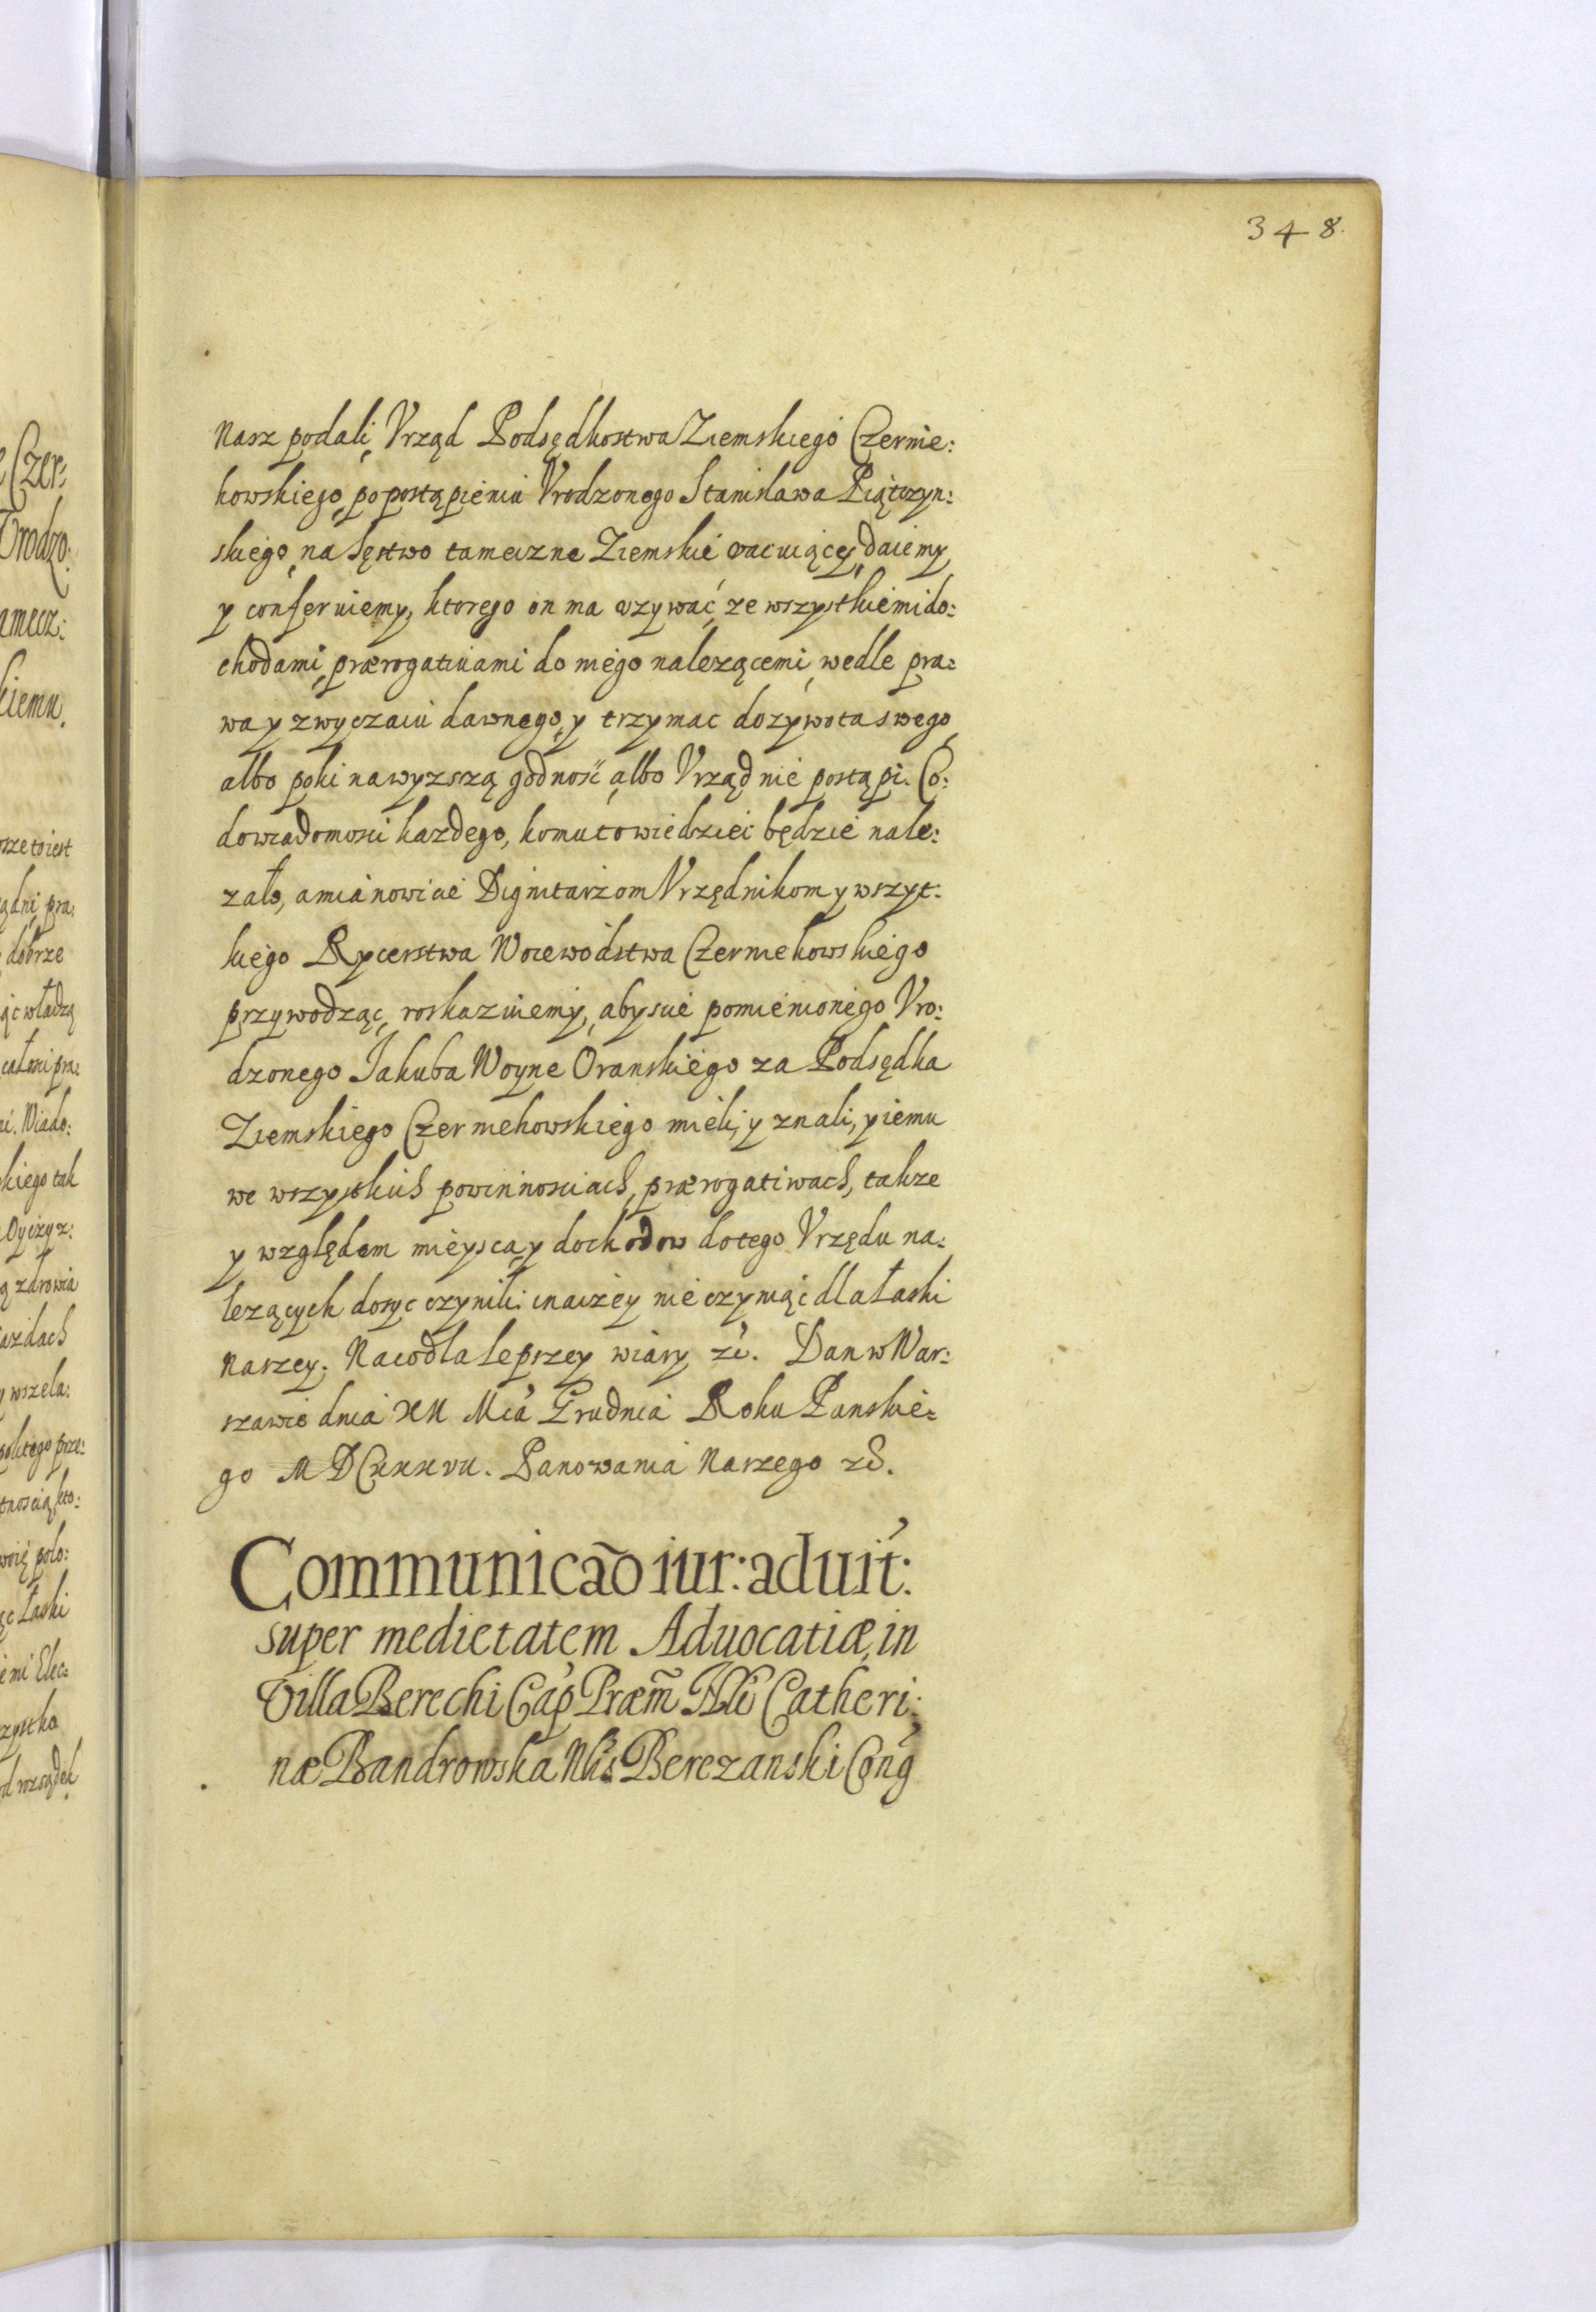 348.
Nasz podali, Vrząd Podsędkostwa Ziemskiego Czernie:
howskiego, po postąpieniu Vrodzonego Stanisława Piątczyn:
skiego, na Sęstwo tameczne Ziemskie vacuiący, daiemy
y conferuiemy, ktorego on ma vzywać ze wszystkiemi do:
chodami, prærogatiuami do niego nalezącemi, wedle pra:
wa y zwyczaiu dawnego, y trzymac dozywota swego,
albo poki nawyzszą godność, albo Vrząd nie postąpi. Co:
dowiadomosci kazdego, komu to wiedziec będzie nale:
zało, amianowicie Dignitarzom Vrzędnikom y wszyt:
kiego Rycerstwa Woiewodstwa Czerniehowskiego
przywodząc, roskazuiemy, abyscie pomienionego Vro:
dzonego Jakuba Woyne Oranskiego za Podsędka
Ziemskiego Czerniehowskiego mieli, y znali, y iemu
we wszystkich powinnosciach, prærogatiwach, takze
y względem mieysca, y dochodow do tego Vrzędu na:
lezących dosyc czynili: inaczey nie czyniąc dla łaski
Naszey. Na co dla lepszey wiary, zć. Dan w War:
szawie dnia XII Mca Grudnia Roku Panskie:
go MDCXXXVII. Panowania Naszego zć.
Communicão iur: aduit:
super medietatem Aduocatiæ, in
Villa Berechi Cap Præm Catheri:
næ Bandrowska Nlis Berezanski Cong
e Czer:
Vrodzo:
amecz:
kiemu.
osze to iest
ądni, pra:
dobrze
ąc władzą
całosci pra:
ni. Wiado:
skiego tak
Oyczyz:
ą zdrowia
iazdach
y wszela:
politego prze:
tnoscią, kto:
woię polo:
ąc łaski
iemi Elec:
zystko
od rozsądek